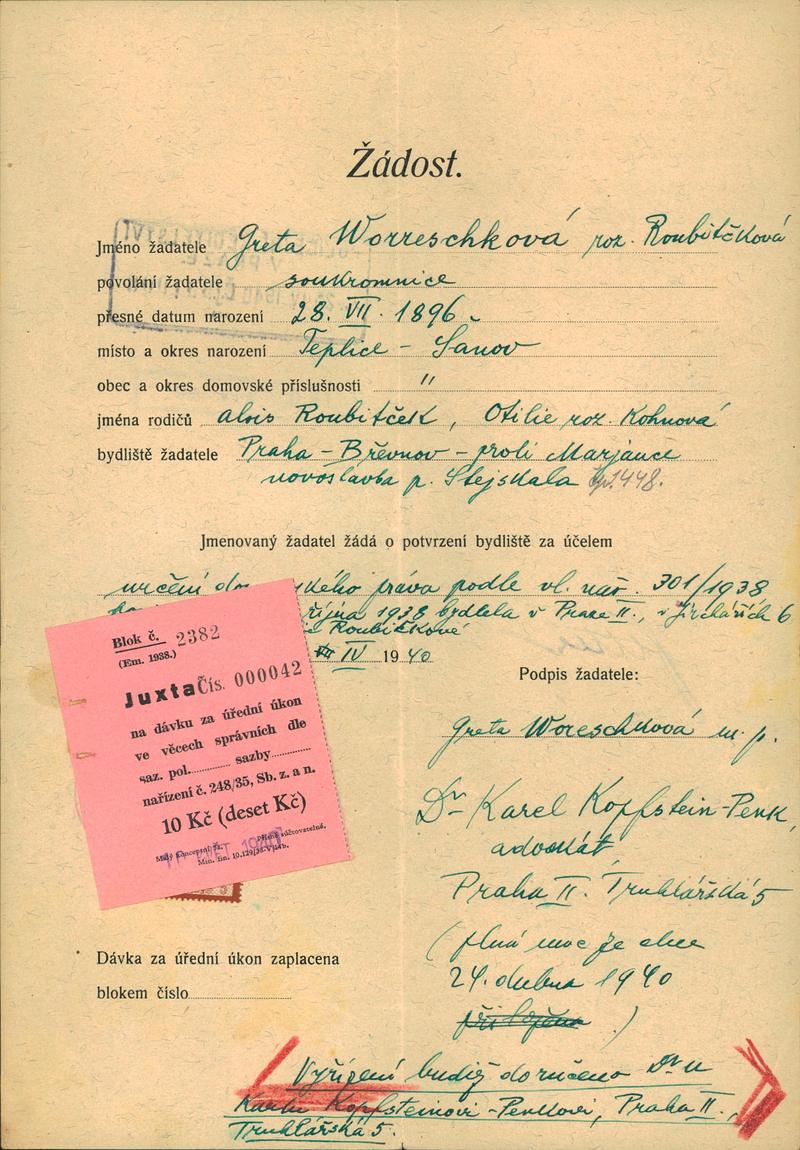 Žádost.
Jméno žadatele Greta Worreschková roz. Roubitčková
povolání žadatele soukromnice
přesné datum narození 28. VII. 1896
místo a okres narození Teplice - Šanov
obec a okres domovské příslušnosti "
jména rodičů Alois Roubitček, Otilie roz. Kohnová
bydliště žadatele Praha - Břevnov - proti Marjánce
novostavba p. Stejskala čp. 1448.
Jmenovaný žadatel žádá o potvrzení bydliště za účelem
určení do ského práva podle vl. nař. 301/1938
října 1938 bydlela v Praze II., v Jirchářích 6
Roubičkové
IV 1940
Podpis žadatele:
Greta Woreschková m. p.
Dr Karel Kopfstein-Penk,
advokát
Praha II. Truhlářská 5
(plná moc ze dne
24. dubna 1940
přiložena)
Blok č. 2382
(Em. 1938.)
Juxta Čís. 000042
na dávku za úřední úkon
ve věcech správních dle
saz. pol. sazby
nařízení č. 248/35, Sb. z. a n.
10 Kč (deset Kč)
Přísně súčtovatelné.
Dávka za úřední úkon zaplacena
blokem číslo
Vyřízení budiž doručeno Dr u
Karlu Kopfsteinovi-Penkovi, Praha II.,
Truhlářská 5.